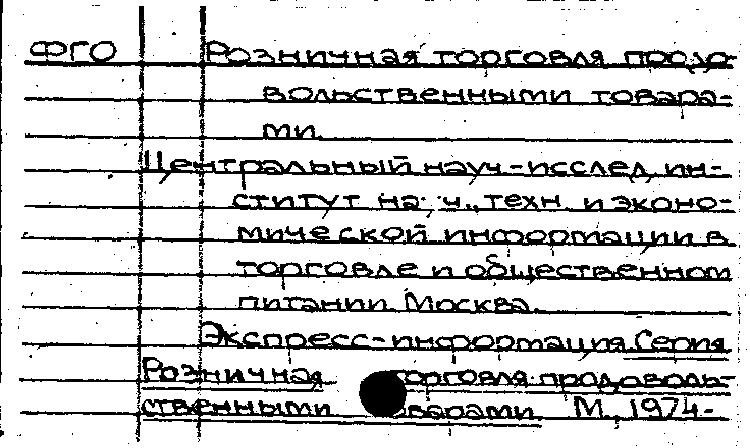 ФГО Розничная торговля продо-
вольственными товара-
ми.
Центральный науч.-исслед. ин-
ститут на ч., техн. и эконо-
мической информации в
торговле и общественном
питании. Москва.
Экспресс-информация. Серия
Розничная торговля продоволь-
ственными товарами. М., 1974-